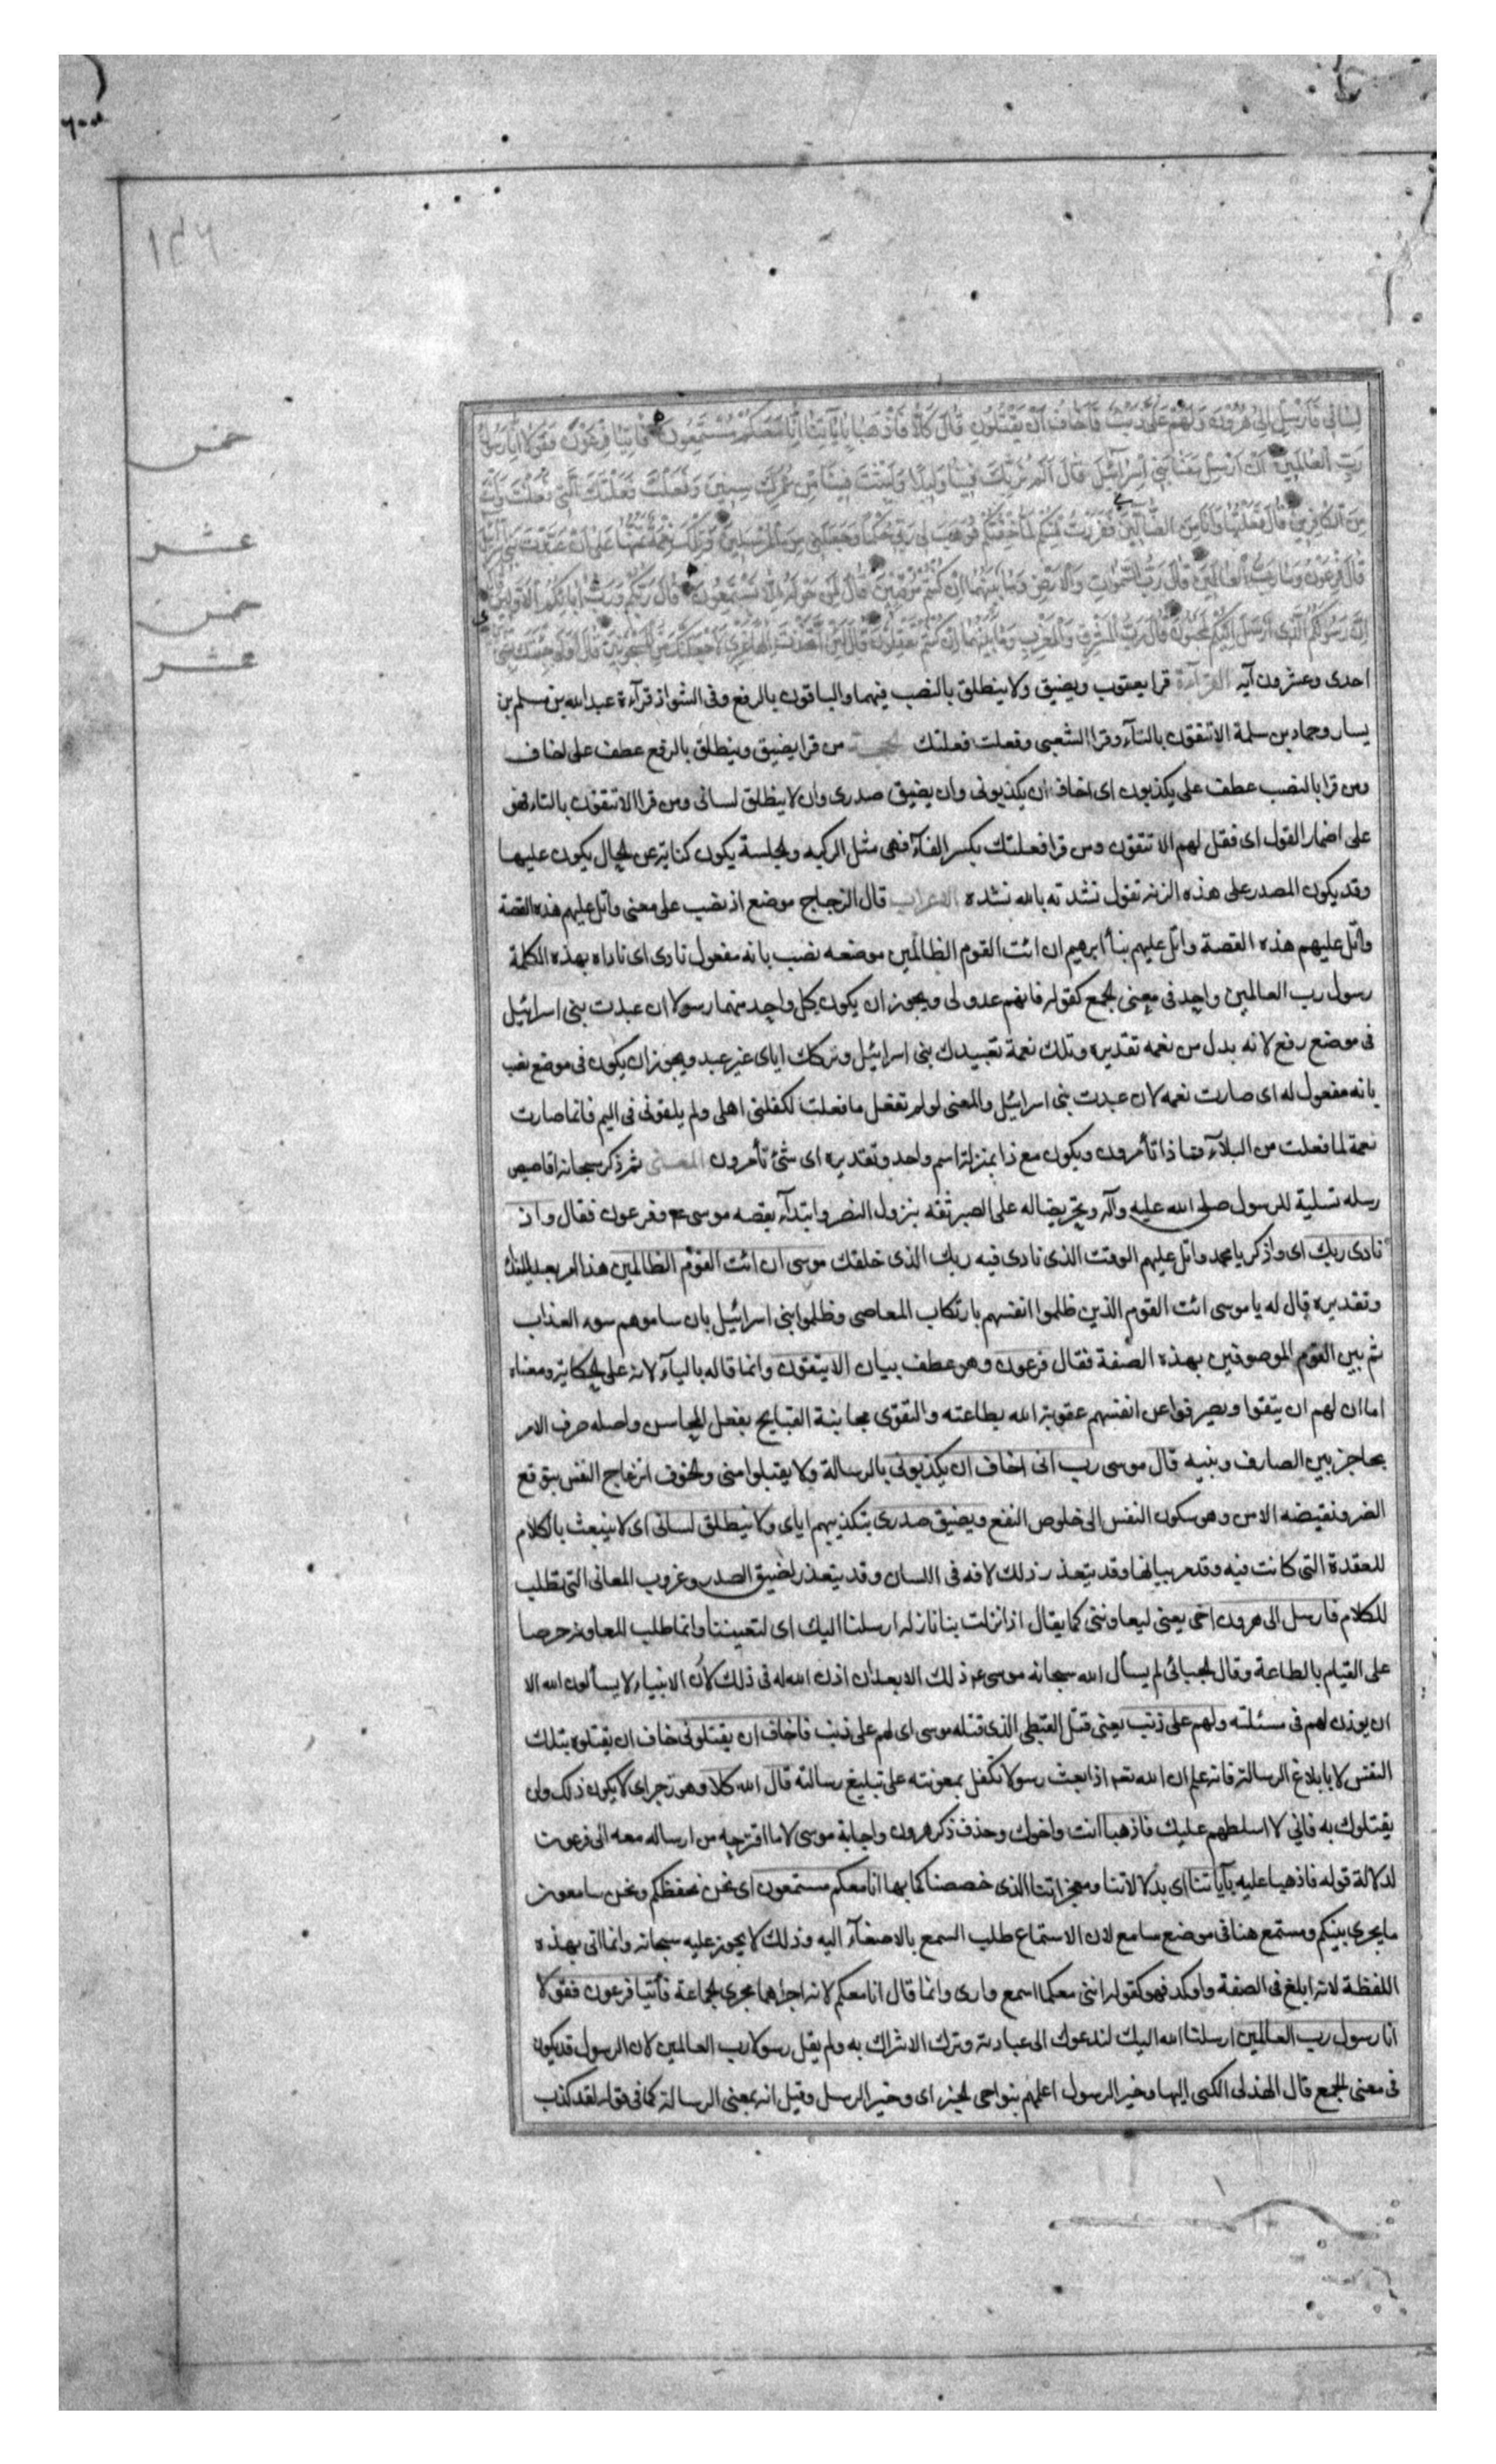 ١٣٦
لساني فارسل الى هرون ولهم على ذنب فاخاف ان يقتلون قال كلا فاذهبا بآياتنا انا معكم مستمعون فأتيا فرعون فقولا انا رسول
رب العالمين ان ارسل معنا بني اسرائيل قال الم نربك فينا وليدا ولبثت فينا من عمرك سنين وفعلت فعلتك التي فعلت وانت
من الكافرين قال فعلتها اذا وانا من الضالين ففررت منكم لما خفتكم فوهب لي ربي حكما وجعلني من المرسلين وتلك نعمة تمنها على ان عبدت بني اسرائيل
قال فرعون وما رب العالمين قال رب السموات والارض وما بينهما ان كنتم موقنين قال لمن حوله الا تستمعون قال ربكم ورب ابائكم الاولين قال
ان رسولكم الذي ارسل اليكم لمجنون قال رب المشرق والمغرب وما بينهما ان كنتم تعقلون قال لئن اتخذت الها غيري لاجعلنك من المسجونين قال اولو جئتك بشئ
خمس
عشر
خمس
عشر
احدى وعشرون آيه القرآءة قرا يعقوب ويضيق ولا ينطلق بالنصب فيهما والباقون بالرفع وفى الشواذ قرآءة عبد الله بن مسلم بن
يسار وحماد بن سلمة الا تتقون بالتآء وقرا الشعبى وفعلت فعلتك الحجة من قرا يضيق وينطلق بالرفع عطف على اخاف
ومن قرا بالنصب عطف على يكذبون اى اخاف ان يكذبونى وان يضيق صدرى وان لا ينطلق لسانى ومن قرا الا تتقون بالتاء فهو
على اضمار القول اى فقل لهم الا تتقون ومن قرا فعلتك بكسر الفآء فهى مثل الركبه والجلسة يكون كناية عن الحال يكون عليها
وقد يكون المصدر على هذه الزنه تقول نشدته بالله نشده الاعراب قال الزجاج موضع اذ نصب على معنى واتل عليهم هذه القصة
واتل عليهم هذه القصة واتل عليهم نبأ ابرهيم ان ائت القوم الظالمين موضعه نصب بانه مفعول نادى اى ناداه بهذه الكلمة
رسول رب العالمين واحد فى معنى الجمع كقوله فانهم عدو لى ويجوز ان يكون كل واحد منهما رسولا ان عبدت بنى اسرائيل
فى موضع رفع لانه بدل من نعمه تقديره وتلك نعمة تعبيدك بنى اسرائيل وتركك اياى غير عبد ويجوز ان يكون فى موضع نصب
بانه مفعول له اى صارت نعمه لان عبدت بنى اسرائيل والمعنى لو لم تفعل ما فعلت لكفلنى اهلى ولم يلقونى فى اليم فانما صارت
نعمة لما فعلت من البلآء فماذا تأمرون ويكون مع ذا بمنزلة اسم واحد وتقديره اى شئ تأمرون المعنى ثم ذكر سبحانه اقاصيص
رسله تسلية للرسول صلى الله عليه وآله وتحريضا له على الصبر ثقه بنزول النصر وابتدآه بقصه موسى ع وفرعون فقال واذ
نادى ربك اى واذكر يا محمد واتل عليهم الوقت الذى نادى فيه ربك الذى خلقك موسى ان ائت القوم الظالمين هذا امر بعد النداء
وتقديره قال له يا موسى ائت القوم الذين ظلموا انفسهم بارتكاب المعاصى وظلموا بنى اسرائيل بان ساموهم سوء العذاب
ثم بين القوم الموصوفين بهذه الصفة فقال فرعون وهو عطف بيان الا يتقون وانما قاله باليآء لانه على الحكاية ومعناه
اما ان لهم ان يتقوا ويصرفوا عن انفسهم عقوبة الله بطاعته والتقوى مجانبة القبايح بفعل المحاسن واصله صرف الامر
بحاجز بين الصارف وبنيه قال موسى رب انى اخاف ان يكذبونى بالرسالة ولا يقبلوا منى والخوف انزعاج النفس بتوقع
الضر ونقيضه الامن وهو سكون النفس الى خلوص النفع ويضيق صدرى بتكذيبهم اياى ولا ينطلق لسانى اى لا ينبعث بالكلام
للعقدة التى كانت فيه وقد مر بيانها وقد يتعذر ذلك لافه فى اللسان وقد يتعذر لضيق الصدر وغروب المعانى التى تطلب
للكلام فارسل الى هرون اخى يعنى ليعاوننى كما يقال اذا نزلت بنا نازله ارسلنا اليك اى لتعيننا وانما طلب المعاونه حرصا
على القيام بالطاعة وقال الجبائى لم يسأل الله سبحانه موسى ع ذلك الا بعد ان اذن الله له فى ذلك لان الانبياء لا يسألون الله الا
ان يوذن لهم فى مسئلته ولهم على ذنب يعنى قتل القبطى الذى قتله موسى اى لهم على ذنب فاخاف ان يقتلونى خاف ان يقتلوه بتلك
النفس لا بابلاغ الرسالة فانه علم ان الله تعه اذا بعث رسولا تكفل بمعونته على تبليغ رسالته قال الله كلا وهو زجر اى لا يكون ذلك ولن
يقتلوك به فانى لا اسلطهم عليك فاذهبا انت واخوك وحذف ذكر هرون واجابة موسى لاما اقترحه من ارساله معه الى فرعون
لدلالة قوله فاذهبا عليه بآياتنا اى بدلالاتنا ومعجزاتنا الذى خصصناكما بها انا معكم مستمعون اى نحن نحفظكم ونحن سامعون
ما يجرى بينكم ومستمع هنا فى موضع سامع لان الاستماع طلب السمع بالاصغآء اليه وذلك لا يجوز عليه سبحانه وانما اتى بهذه
اللفظة لانه ابلغ فى الصفة واوكد فهو كقوله اننى معكما اسمع وارى وانما قال انا معكم لانه اجراهما مجرى الجماعة فأتيا فرعون فقولا
انا رسول رب العالمين ارسلنا الله اليك لندعوك الى عبادته وترك الاشراك به ولم يقل رسولا رب العالمين لان الرسول قد يكون
فى معنى الجمع قال الهذلى الكنى اليها وخير الرسول اعلمهم بنواحى الخبر اى وخير الرسل وقيل انه بمعنى الرسالة كما فى قوله لقد كذب